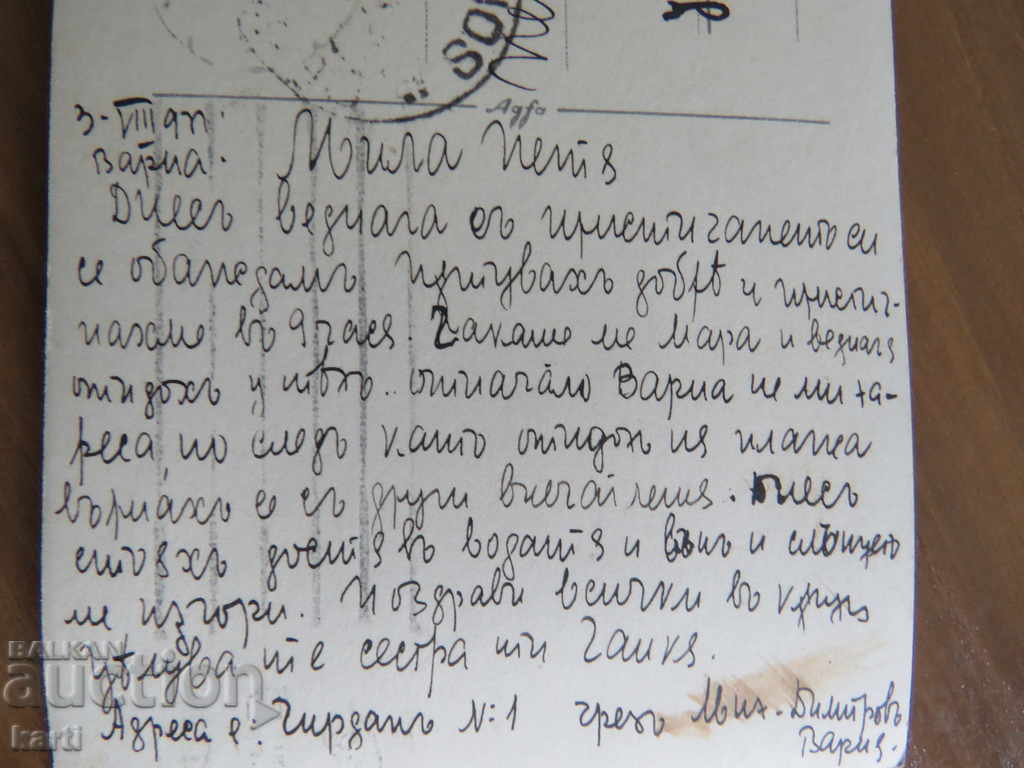 SO
Адре
3-VIII 
Варна.
Мила Петя
Днесъ веднага съ пристигането си
се обаждамъ пътувахъ добрѣ и пристиг-
нахме въ 9 часа. Чакаше ме Мара и веднага
отидохъ у тѣхъ.. отначало Варна не ми ха-
реса, но следъ като отидох на плажа
върнахъ се съ други впечатления. Днесъ
стояхъ доста въ водата и вънъ и слънцето
ме изгори. Поздрави всички въ
цѣлува те сестра ти Ганка.
Адреса е: Чирдакъ №: 1 чрезъ Мих. Димитровъ
Варна.
BALKAN
auction
karti